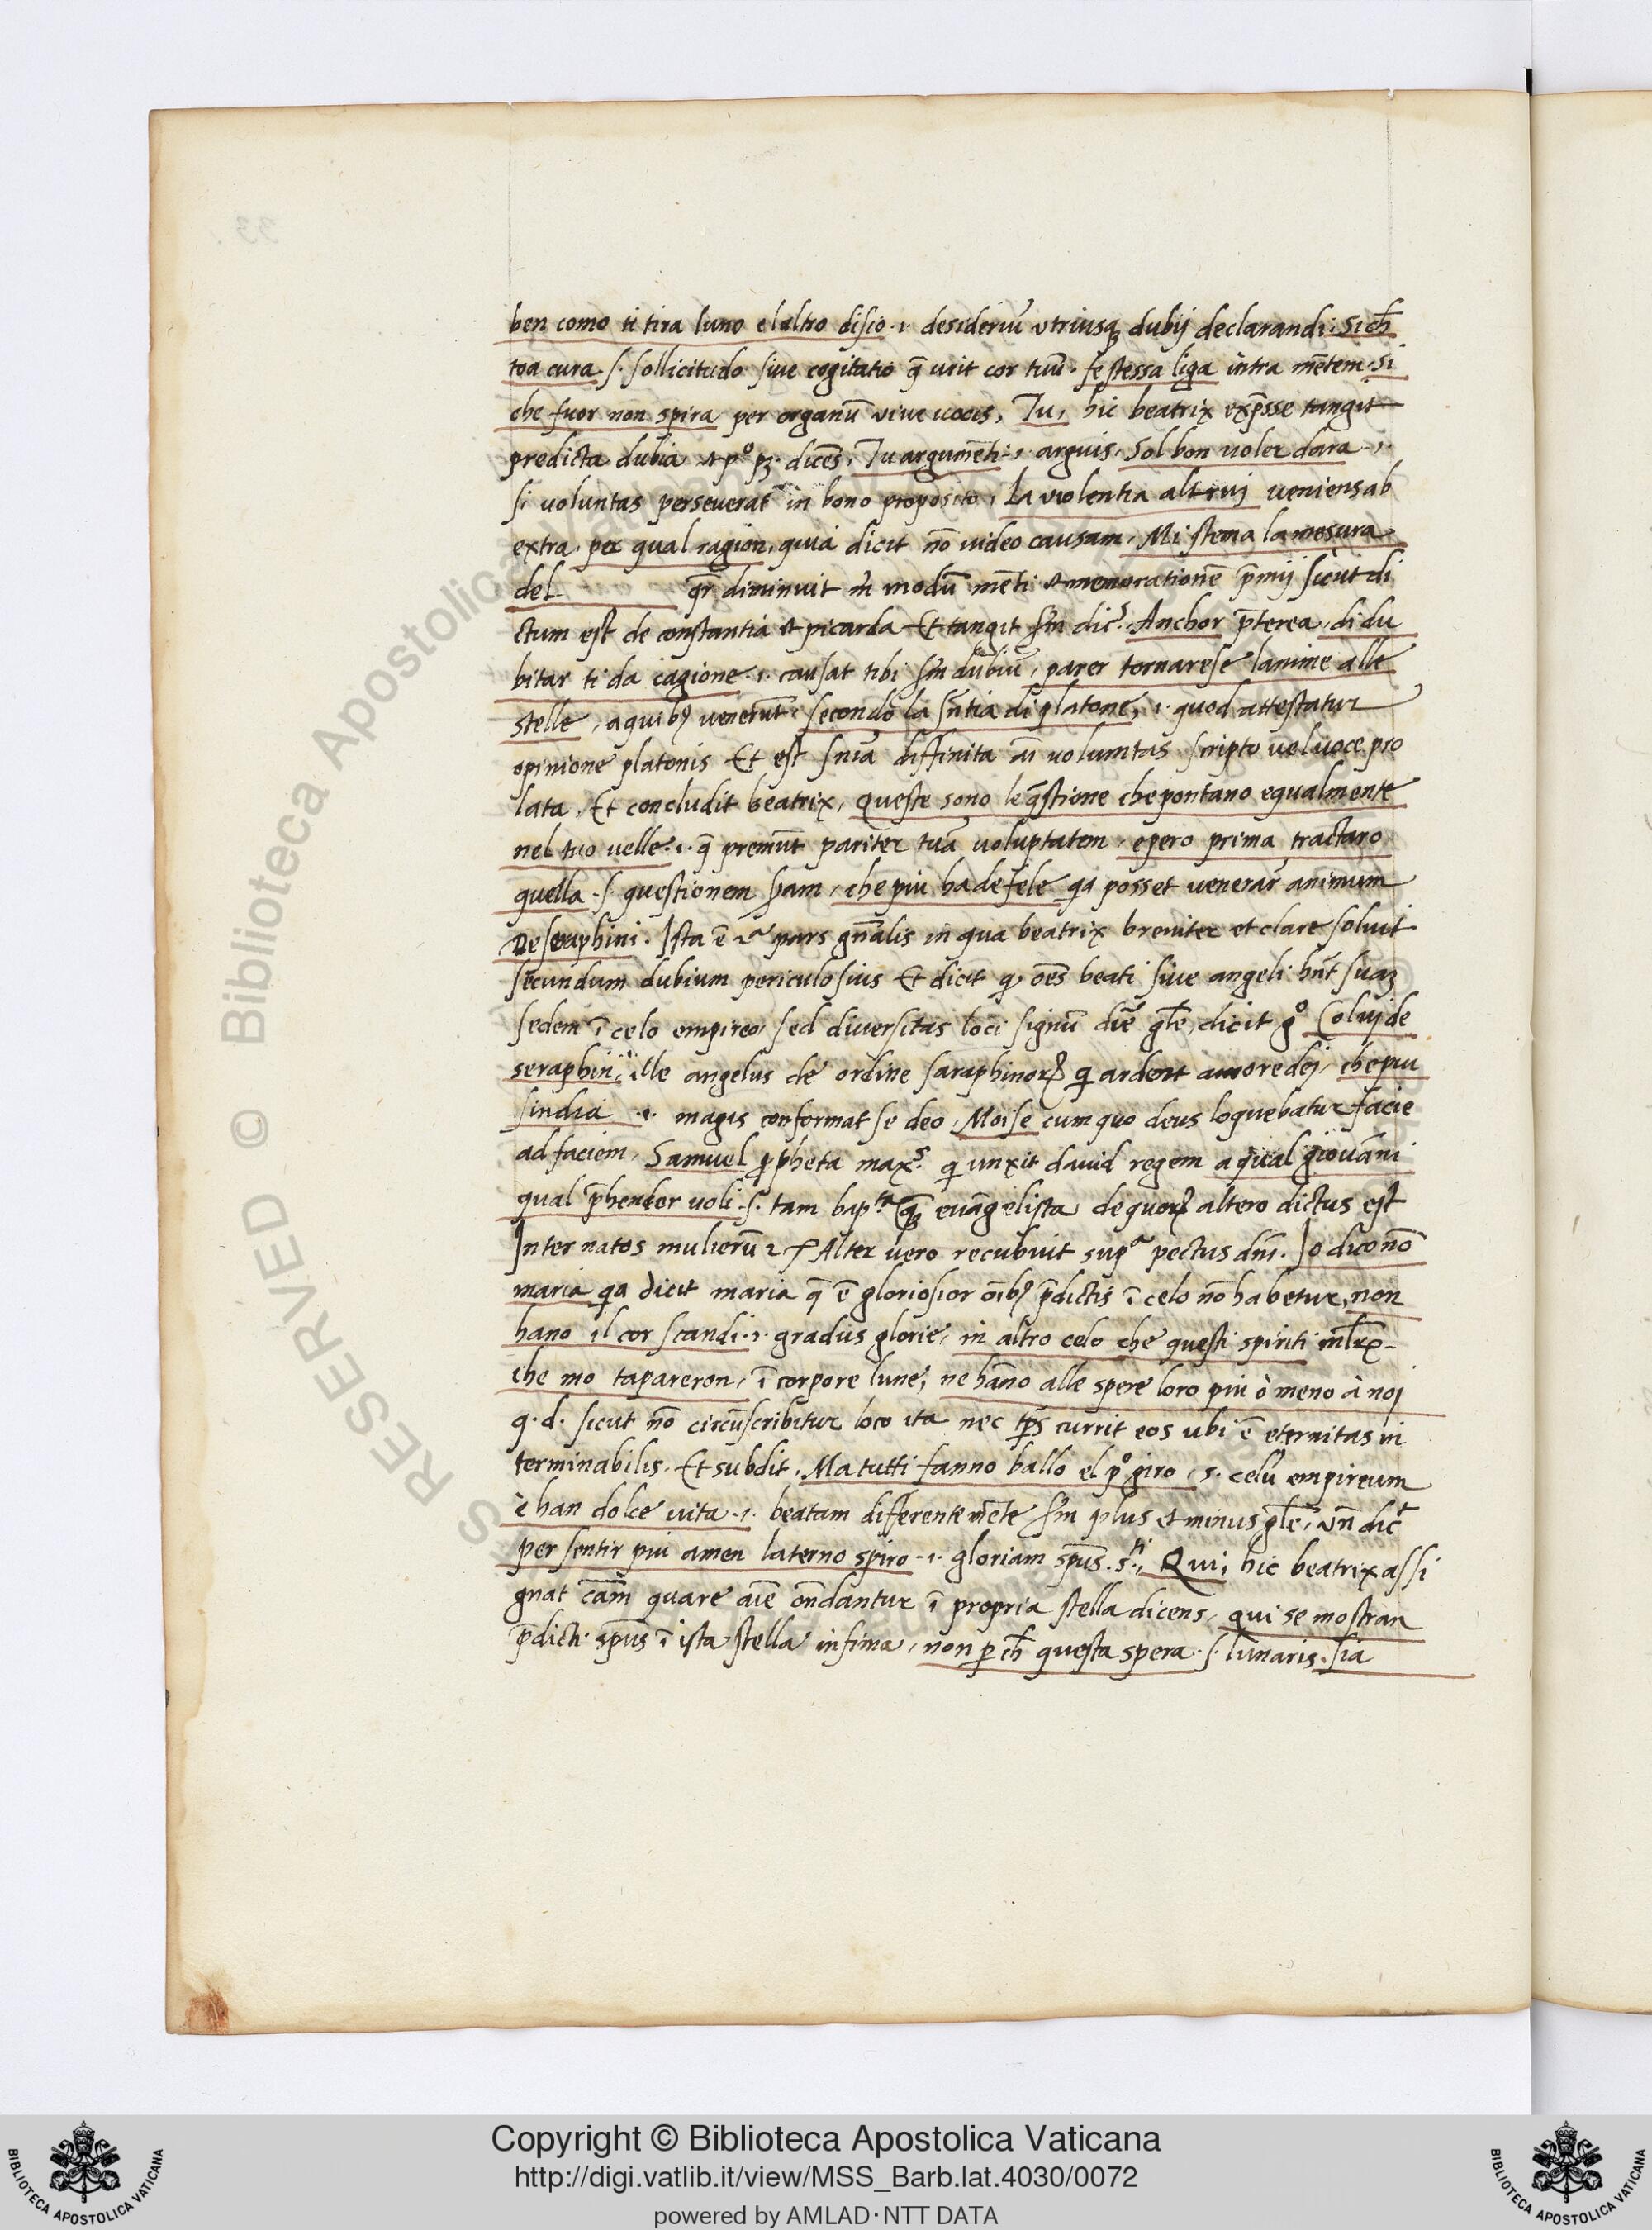 ben como ti tira luno elaltro disio .i. desideriū utriusq̢ dubij declarandi. Sich̄
toa cura .s. sollicitudo sive cogitatio q̄ urit cor tuū. se stessa liga intra mētem. Si
che fuor non spira per organū vive voces, Tu, hic beatrix exp̄sse tangit
predicta dubia et p° dicēs. Tu argumēti .i. arguis. Sol bon voler dara .i.
si voluntas perseverat in bono proposito, La violentia altruj veniens ab
extra, per qual ragion, quia dicit nō video causam, Mi stema la mesura
del qr̄ diminuit modū mēti et memorationē p̄mij sicut di
ctum est de constantia et picarda Et tangit sm̄ dic̄. Anchor p̄terea, di du
bitar ti da cagione .i. causat tibi sm̄ dubiū, parer tornarese lanime alle
stelle, a quibꝯ venerūt secondo la sn̄tia di platone, .i. quod attestatur
opinione platonis Et est snīa diffinita aī voluntas scripto vel voce pro
lata. Et concludit beatrix, Queste sono le q̄stione che pontano equalmente
nel tuo velle .i. q̄ premūt pariter tuā voluptatem. epero prima tractaro
quella .s. questionem sam, che piu ha de fele qa posset venerār animum
De seraphini. Ista ē 2ª pars gn̄alis in qua beatrix breviter et clare solvit
secundum dubium periculosius Et dicit q̢ oēs beati sive angeli hn̄t suaz
sedem ī celo empireo, sed diversitas loci signū diē gl̄e, dicit g° Coluj de
seraphin .i. ille angelus de ordine saraphinoꝝ qi ardent amore dej, che piu
sindia .i. magis conformat se deo, Moise cum quo deus loquebatur facie
ad faciem, Samuel ꝓpheta max.ˢ qi unxit david regem a qual giovāni
qual p̄hender voli .s. tam bap.ᵗᵃ qȝ evāgelista de quoꝝ altero dictus est
Inter natos mulierū 2 Alter vero recubuit supª pectus dn̄i. Io dico nō
maria qa dicit maria q̄ ē gloriosior oībꝯ p̄dictis ī celo nō habetur, non
hano il cor scandi .i. gradus glorie, in altro celo che questi spiriti
che mo tapareron, ī corpore lune, ne hāno alle spere loro piu ò meno à noj
q.d. sicut nō circūscribitur loco ita nec tp̄s currit eos ubi ē eternitas in
terminabilis. Et subdit, Ma tutti fanno ballo el p° giro, s. celū empireum
è han dolce vita .i. beatam differentemēte sm̄ plus et minus gl̄e, vn̄ dic̄
per sentir piu amen laterno spiro .i. gloriam sp̄us. s.ᵗⁱ, Qui, hic beatrix assi
gnat cām quare aīe on̄dantur ī propria stella dicens, qui se mostran
p̄dicti sp̄us ī ista stella infima, non ꝑ ch̄ questa spera .s. lunaris. sia
Copyright © Biblioteca Apostolica Vaticana
http://digi.vatlib.it/view/MSS_Barb.lat.4030/0072
powered by AMLAD·NTT DATA
BIBLIOTECA APOSTOLICA VATICANA
BIBLIOTECA APOSTOLICA VATICANA